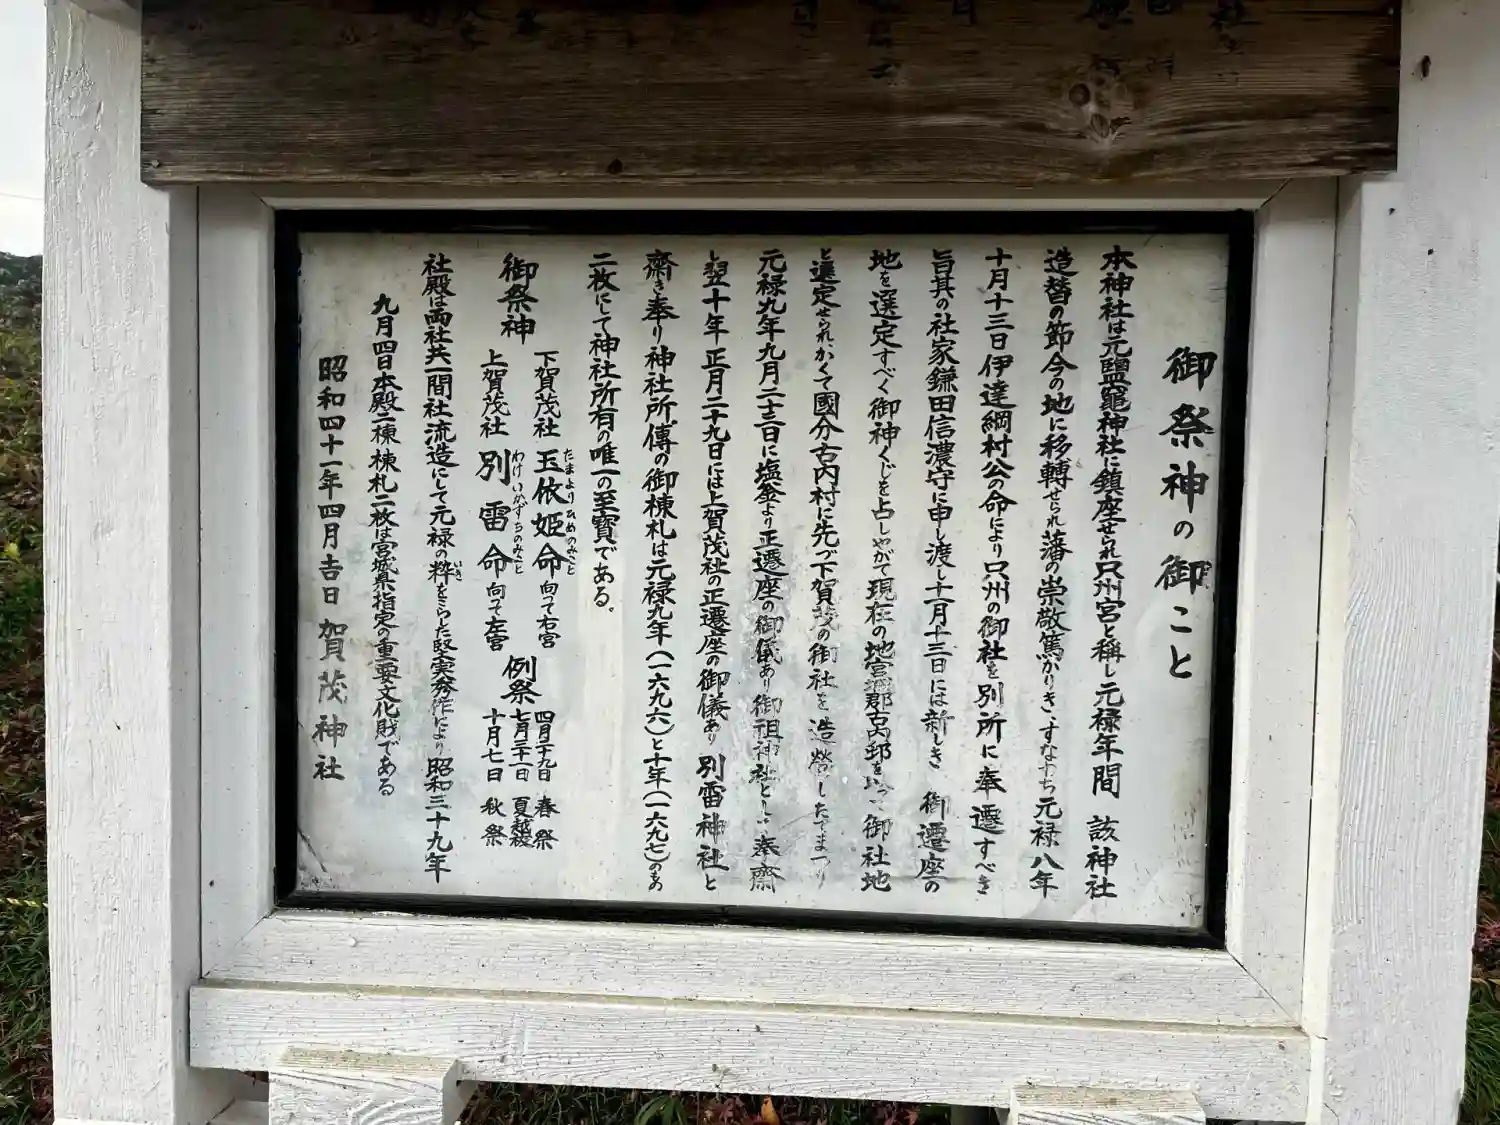 御祭神の御こと
本神社は元鹽竈神社に鎮座せられ只州宮と稱し元禄年間 該神社
造替の節今の地に移轉せられ藩の崇敬篤かりきすなわち元禄八年
十月十三日伊達綱村公の命により只州の御社を別所に奉遷すべき
旨其の社家鎌田信濃守に申し渡し十一月十三日には新しき 御遷座の
地を選定すべく御神くじを占しやがて現在の地宮城郡古内邨を以って御社地
と選定せられかくて國分古内村に先づ下賀茂の御社を造營したてまつり
元禄九年九月二十三日に塩釜より正遷座の御儀あり御祖神社として奉齋
し翌十年正月二十九日には上賀茂社の正遷座の御儀あり 別雷神社と
齋き奉り神社所傳の御棟札は元禄九年(一六九六)と十年(一六九七)のもの
二枚にして神社所有の唯一の至寶である。
御祭神
下賀茂社 玉依姫命 向って右宮
たまよりひめのみこと
上賀茂社 別雷命 向って左宮
わけいかずちのみこと
例祭
四月二十九日 春祭
七月三十一日 夏越祓
十月七日 秋祭
社殿は両社共一間社流造にして元禄の粋をこらした堅実秀作により昭和三十九年
いき
九月四日本殿二棟棟札二枚は宮城県指定の重要文化財である
昭和四十一年四月吉日 賀茂神社